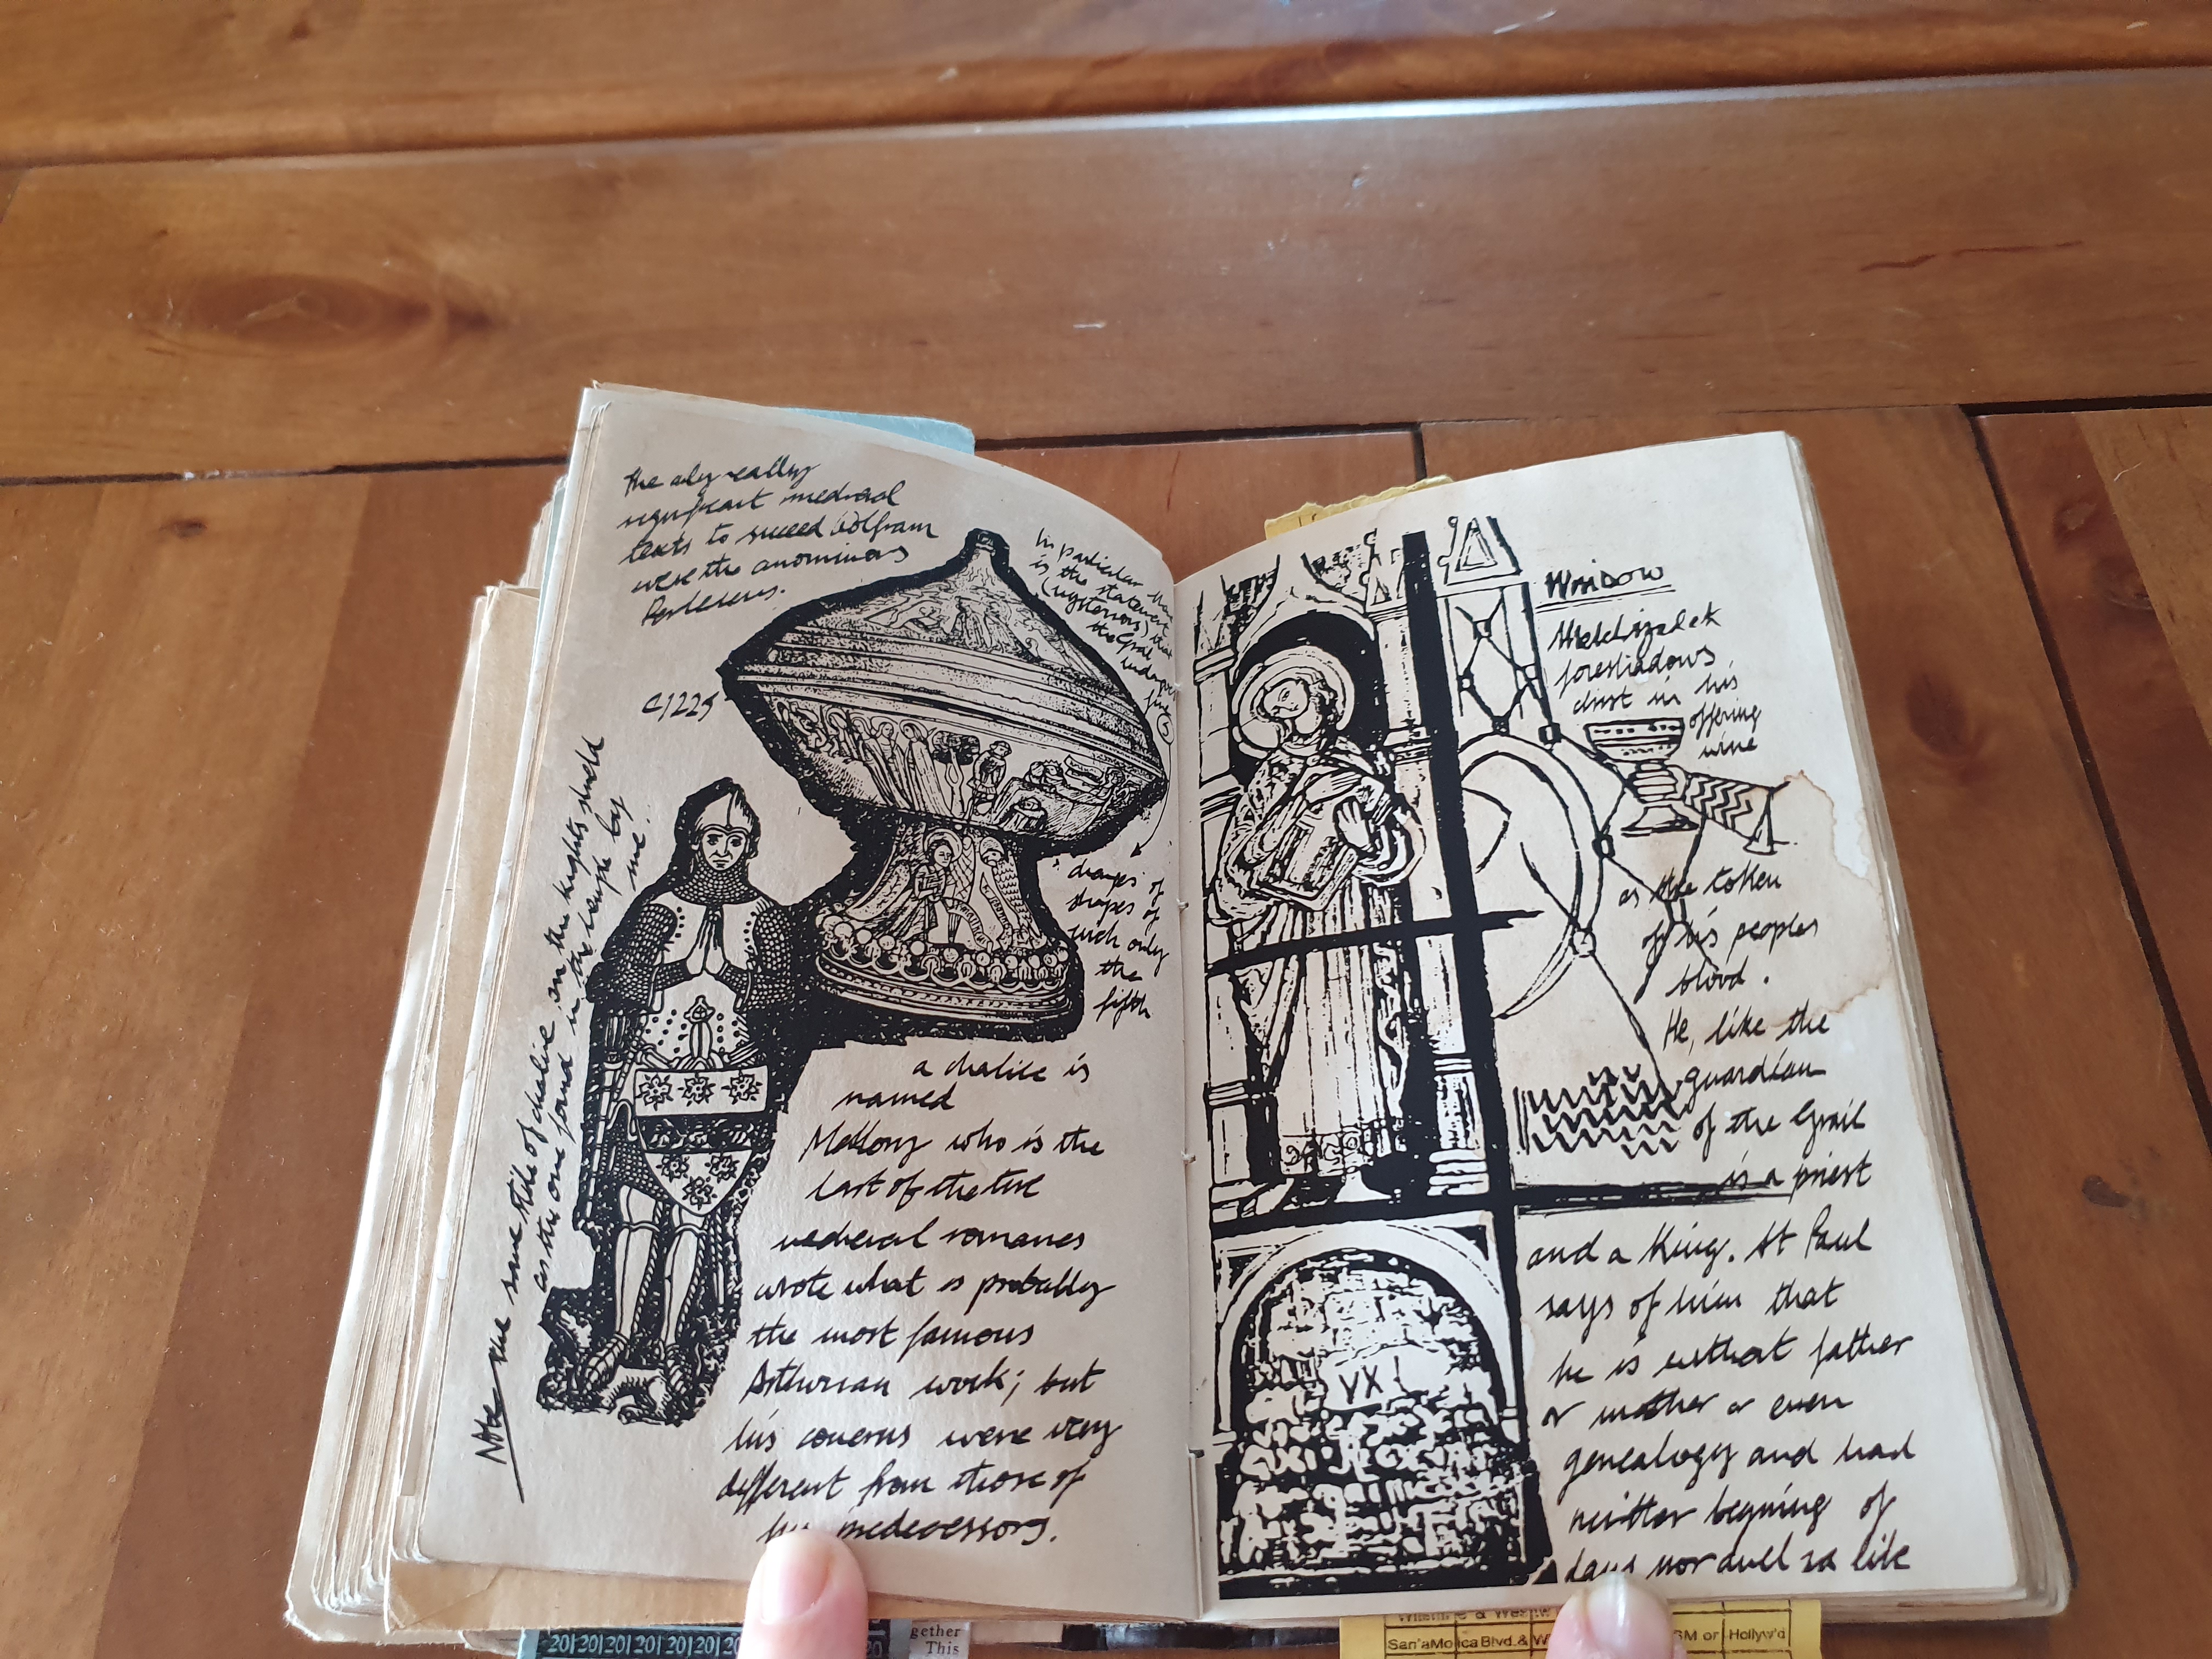 the only really
significant medieval
texts to succeed Wolfram
were the anominous
Perlesvus.
In particular
is the statement that
(mysterious) that
the Grail
undergoes
five
5
changes of
shapes of
wich only
the
fifth
C1225
Note the same title of chalice on the knights shield
as the one found in the temple by
me!
a chalice is
named
Mallory who is the
last of the true
medieval romances
wrote what is probably
the most famous
Arthurian work; but
his concerns were very
different from those of
his predecessors.
WINDOW
Melchizadek
foreshadows
christ in his
offering
wine
as the token
of his peoples
blood.
He, like the
guardian
of the Grail
is a priest
and a King. St Paul
says of him that
he is without father
or mother or even
genealogy and had
neither begining of
days nor
like
VXI
gether
This
20|20|20|20|20|20|20
20
Wilshire & West
San'aMo ica Blvd. & W
SM or Hollyw'd